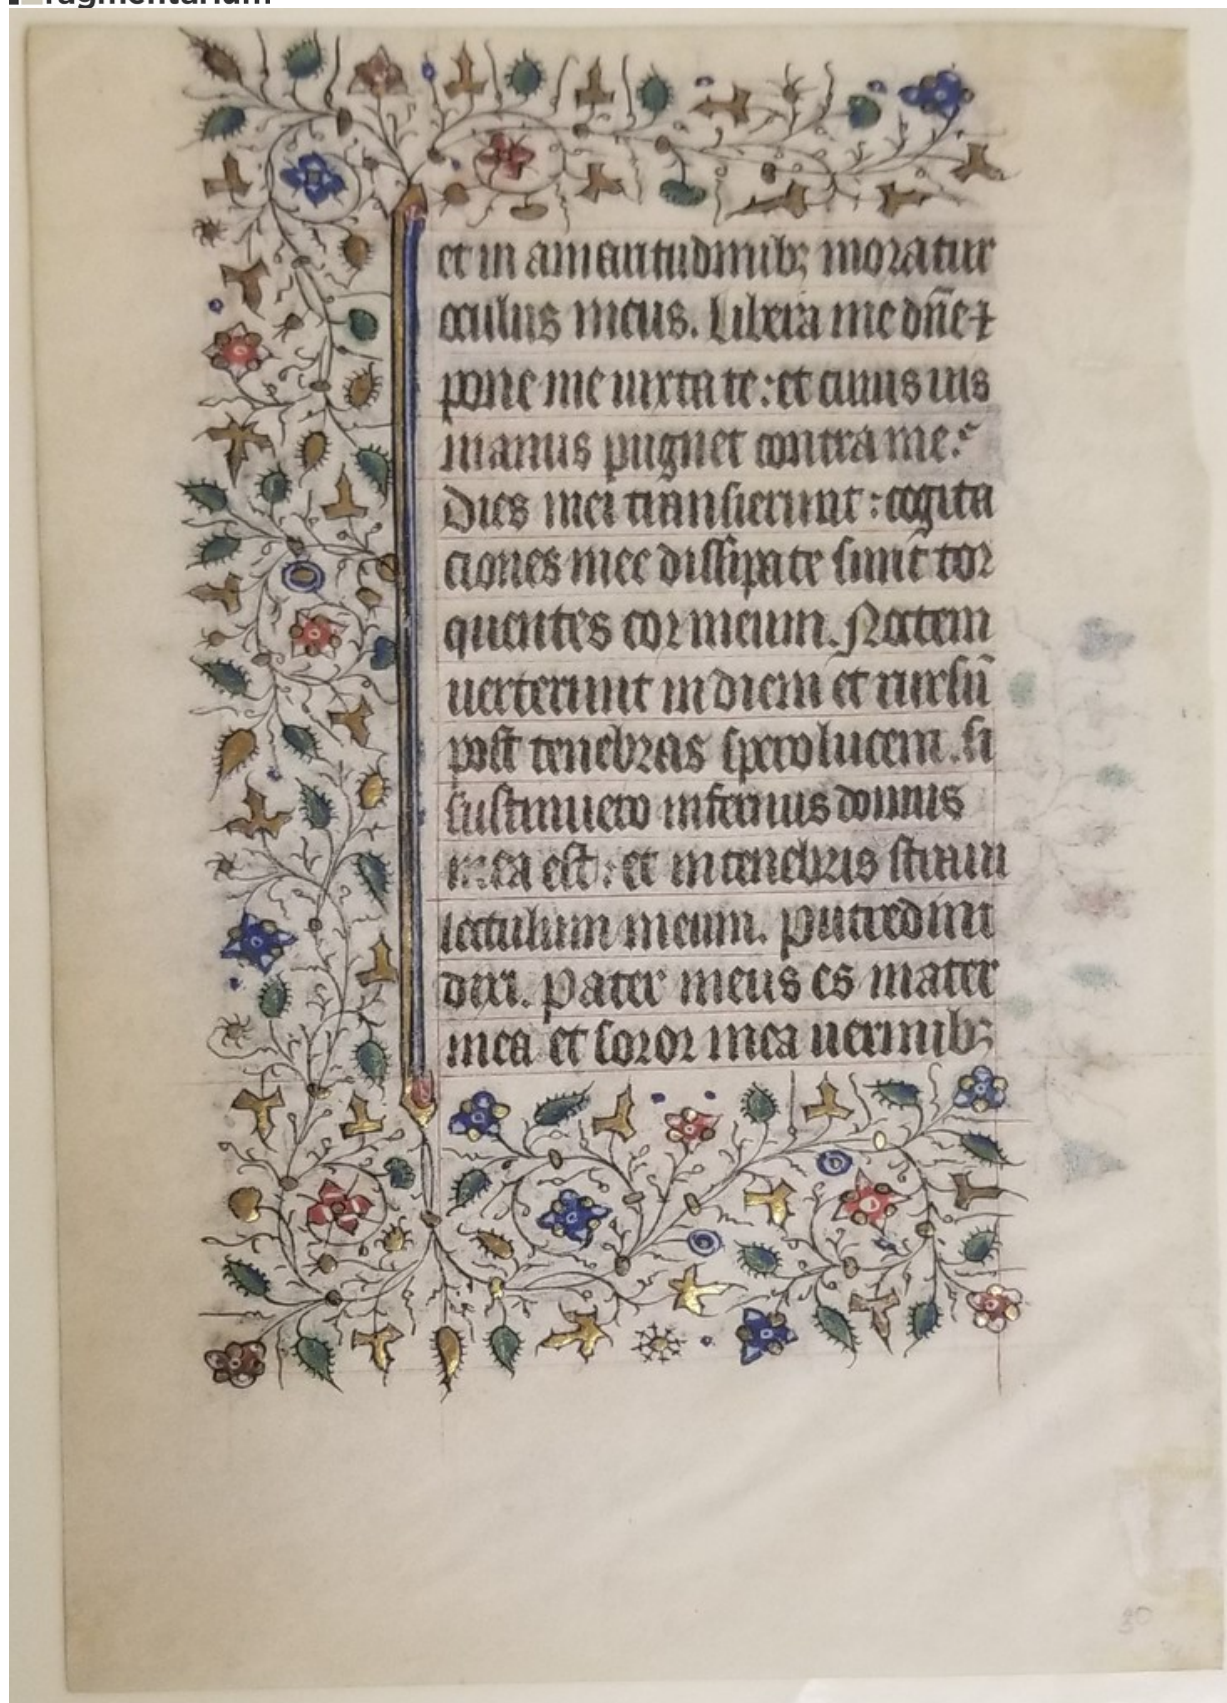 ragmentarium
et in amaritudinibꝫ moratur
oculus meus. Libera me dn̄e ⁊
pone me iuxta te: et cuiuis uis
manus pugnet contra me.
Dies mei transierunt: cogita
ciones mee dissipate sunt tor
quentes cor meum. Noctem
uerterunt in diem et rursū
post tenebras spero lucem. si
sustinuero infernus domus
mea est: et in tenebris straui
lectulum meum. Putredini
dixi. Pater meus es mater
mea et soror mea uermibꝫ
30